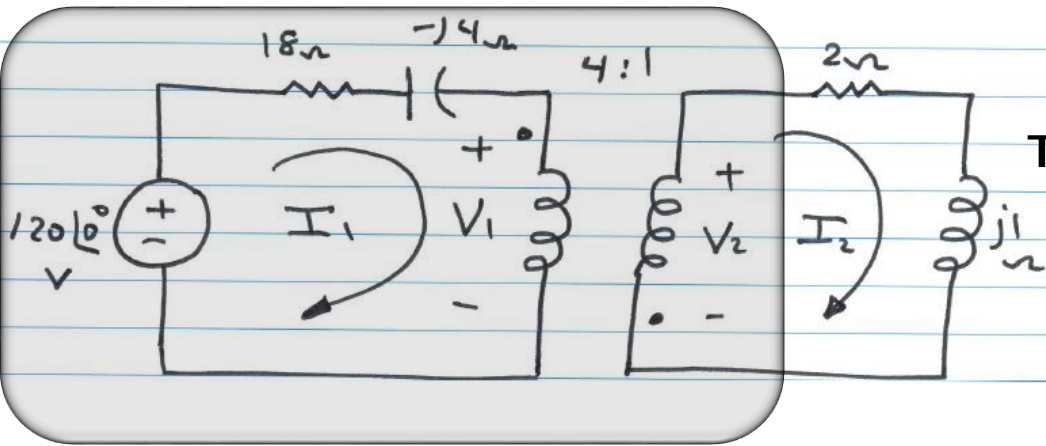 18Ω -j4Ω 4:1 2Ω
+ +
T
120∠0° + - I₁ V₁ V₂ I₂ j1
V Ω
- -